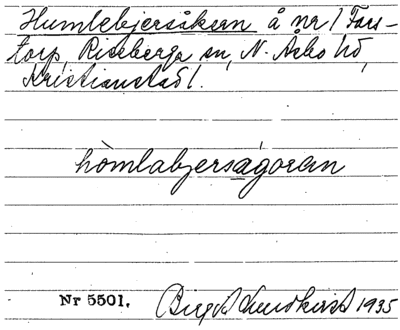 Humlebjersåkern å nr 1 Fars-
torp, Riseberga sn, N. Åsbo hd,
Kristianstad l.
hömlabjersågoran
Nr 5501. Birgit Lundkvist 1935